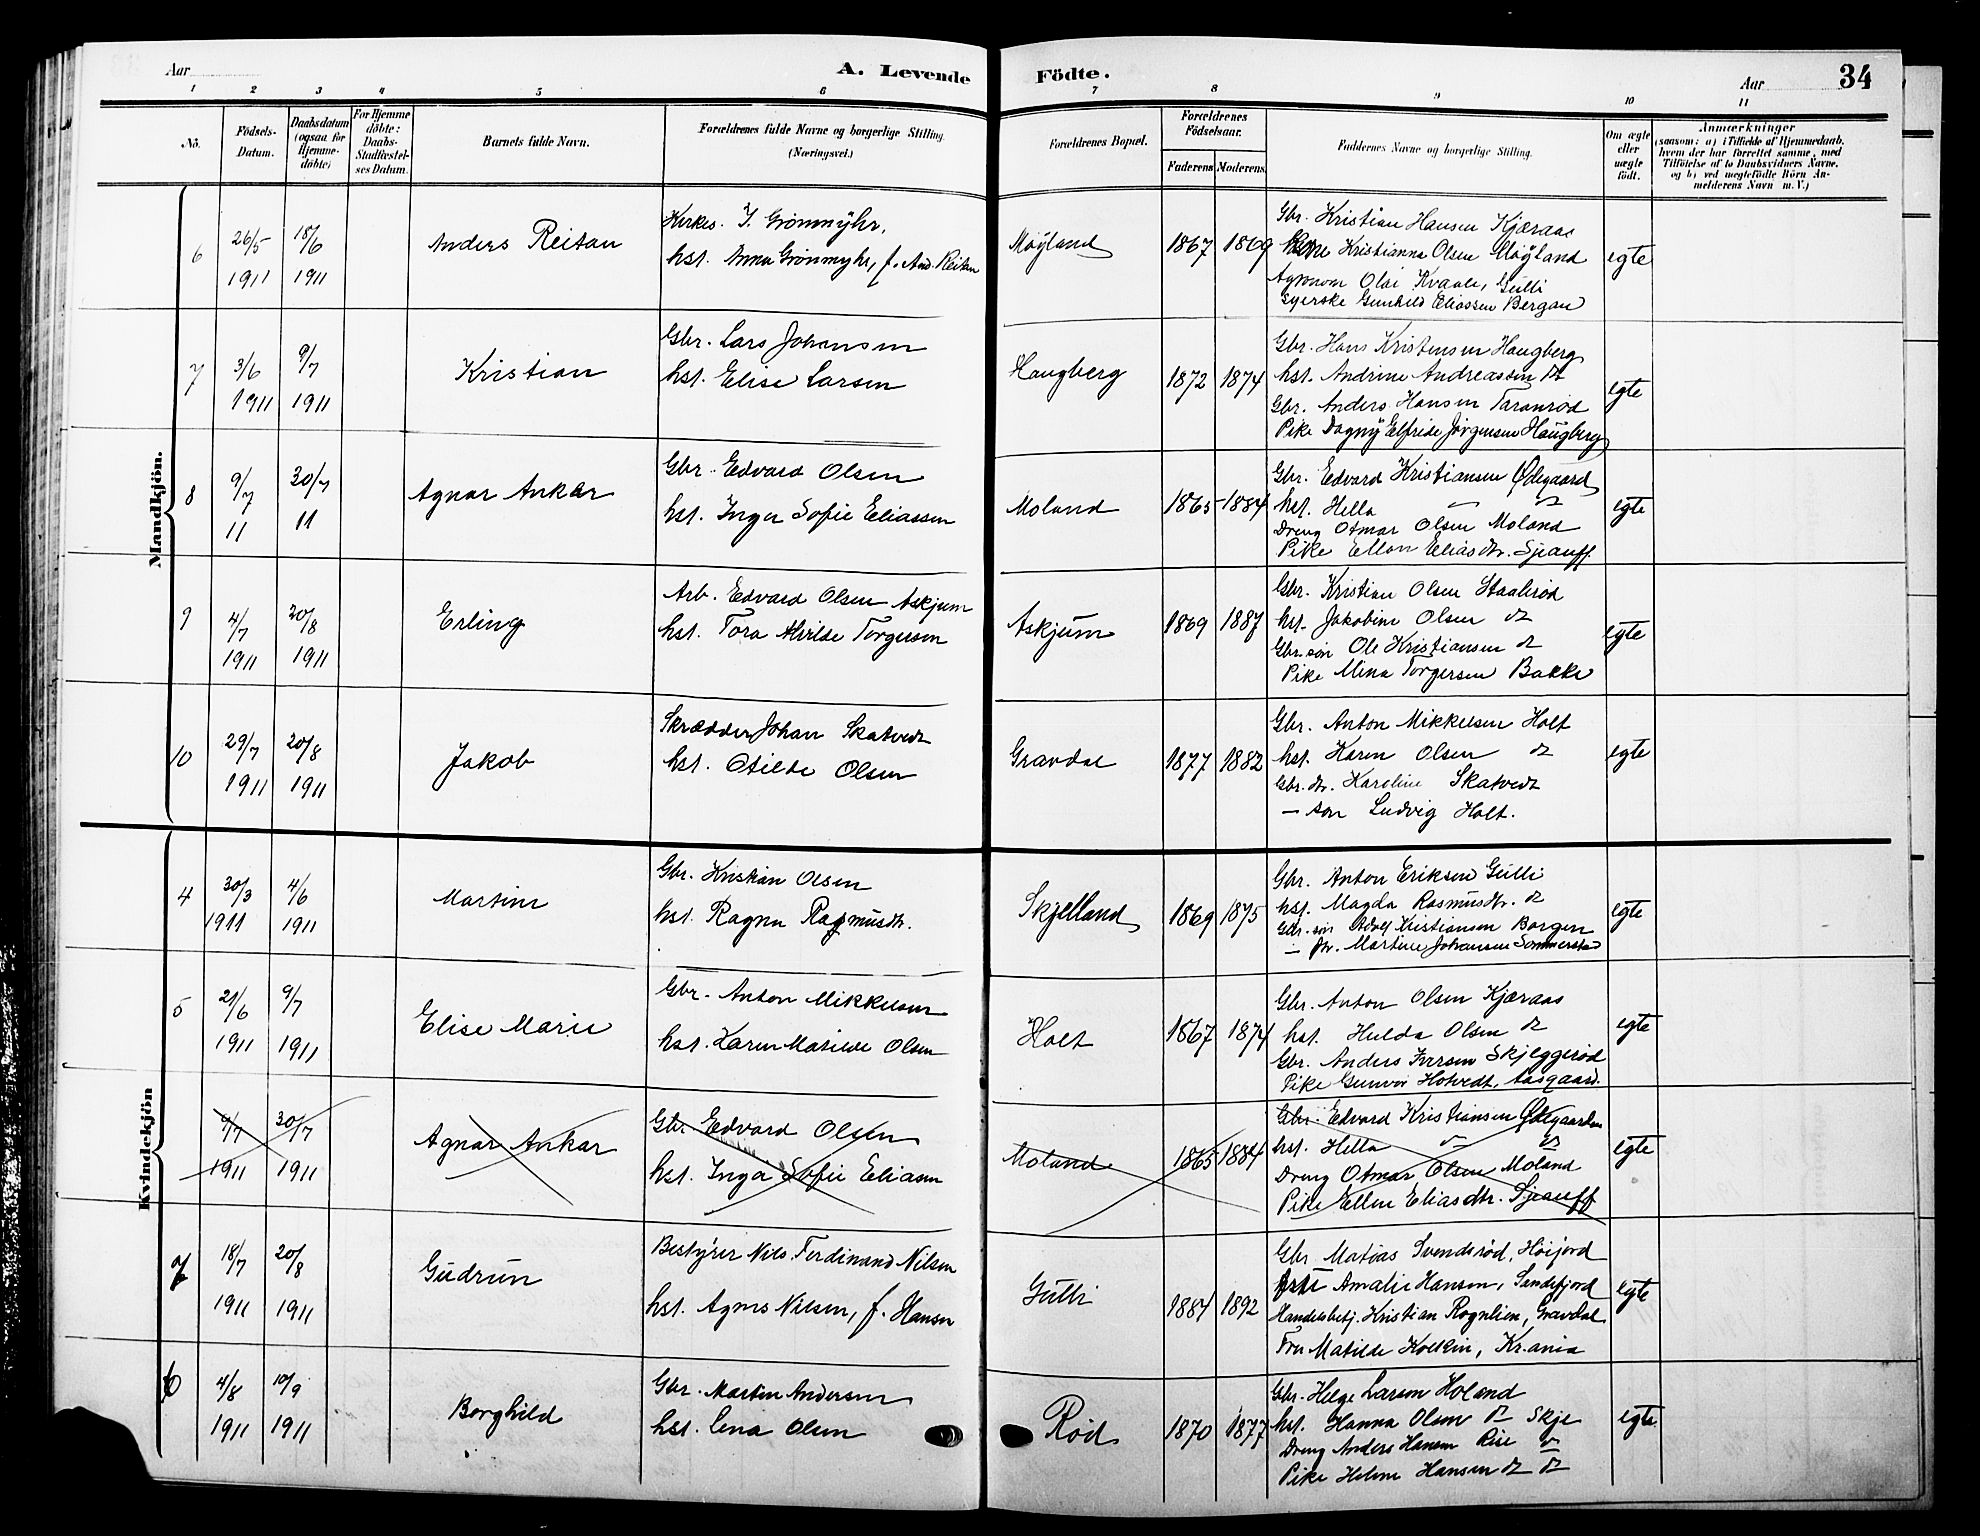 Aar
A. Levende Födte.
Aar
34
1 2 3 4 5 6 7 8 9 10 11
No.
Födsels-Datum.
Daabsdatum (ogsaa for Hjemme-döbte)
For Hjemme döbte: Daabs-Stadfæstel-ses Datum.
Barnets fulde Navn.
Forældrenes fulde Navne og borgerlige Stilling. (Næringsvei.)
Forældrenes Bopæl.
Forældrenes Födselsaar.
Faderens Moderens
Faddernes Navne og borgerlige Stilling.
Om ægte eller uægte födt.
Anmærkninger
(saasom: a) i Tilfælde af Hjemmedaab, hvem der har forrettet samme, med Tilföielse af to Daabsvidners Navne, og b) ved uegtefödte Börn An-melderens Navn m. V.)
Mandkjön.
6 26/5 1911 18/6 1911 Anders Reitan
Kirkes. I. Grönmyhr,
hst. Anna Grönmyhr, f. And. Reitan
Møyland 1867 1869
Gbr. Kristian Hansen Kjæraas
Kristianna Olsen Møyland
Agronom Olai Kvaale, Gulli
Syerske Gunhild Eliassen Bergan
egte
7 3/6 1911 9/7 1911 Kristian
Gbr. Lars Johansen
hst. Elise Larsen
Haugberg 1872 1874
Gbr. Hans Kristensen Haugberg
hst. Andrine Andreassen do
Gbr. Anders Hansen Taranrød
Pike Dagny Elfride Jörgensen Haugberg
egte
8 9/7 11 30/7 11 Agnar Ankar
Gbr. Edvard Olsen
hst. Inga Sofie Eliassen
Moland 1865 1884
Gbr. Edvard Kristiansen Ødegaard
hst. Hella do do
Dreng Otmar Olsen Moland
Pike Ellen Eliasdtr. Sjeauff.
egte
9 4/7 1911 20/8 1911 Erling
Arb. Edvard Olsen Askjum
hst. Tora Alvilde Torgersen
Askjum 1869 1887
Gbr. Kristian Olsen Staalerød
hst. Jakobine Olsen do
Gbr. søn Ole Kristiansen do
Pike Mina Torgersen Bakke
egte
10 29/7 1911 20/8 1911 Jakob
Skrædder Johan Skatvedt
hst. Otilde Olsen
Gravdal 1877 1882
Gbr. Anton Mikkelsen Holt
hst. Karen Olsen do
Gbr. dtr. Karoline Skatvedt
— søn Ludvig Holt.
egte
Kvindekjön
4 30/3 1911 4/6 1911 Martine
Gbr. Kristian Olsen
hst. Ragna Rasmusdtr.
Skjelland 1869 1875
Gbr. Anton Eriksen Gulli
hst. Magda Rasmusdtr. do
Gbr. søn Adolf Kristiansen Borgen
— dtr. Martine Johansen Sommerstad
egte
5 21/6 1911 9/7 1911 Elise Marie
Gbr. Anton Mikkelsen
hst. Karen Matilde Olsen
Holt 1867 1874
Gbr. Anton Olsen Kjæraas
hst. Hulda Olsen do
Gbr. Anders Iversen Skjeggerød
Pike Gunvor Hotvedt, Aasgaard.
egte
9/7 1911 30/7 1911 Agnar Ankar
Gbr. Edvard Olsen
hst. Inga Sofie Eliasen
Moland 1865 1884
Gbr. Edvard Kristiansen Ødegaarden
hst. Hella do do
Dreng Otmar Olsen Moland
Pike Ellen Eliasdtr. Sjeauff
egte
7 18/7 1911 20/8 1911 Gudrun
Bestyrer Nils Ferdinand Nilsen
hst. Agnes Nilsen, f. Hansen
Gulli 1884 1892
Gbr Matias Svendsrød, Höijord
Amalie Hansen, Sandefjord
Handelsbetj. Kristian Rognlien, Gravdal
Fru Matilde Holkin, Kr.ania
egte
6 4/8 1911 10/9 1911 Borghild
Gbr. Martin Andersen
hst. Lina Olsen
Rød 1870 1877
Gbr. Helge Larsen Holand
hst. Hanna Olsen do Skje
Dreng Anders Hansen Rise do
Pike Helene Hansen do do
egte